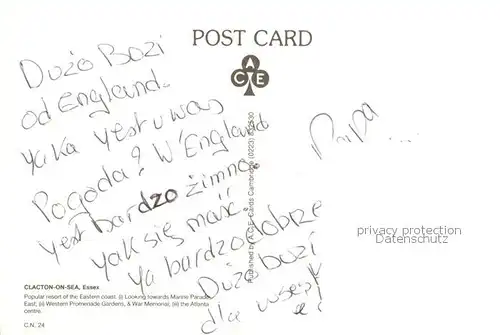 POST CARD
A
C E
Dużo Bozi
od England.
yaka yest u was
Pogoda? W'England
yest bardzo zimno.
yak się masz.
ya bardzo dobrze
Dużo bozi
dla
Papa
privacy protection
Datenschutz
Published by A.C.E. Cards Cambridge (0223)
CLACTON-ON-SEA, Essex
Popular resort of the Eastern coast. (i) Looking towards Marine Parade
East; (ii) Western Promenade Gardens, & War Memorial; (iii) the Atlanta
centre.
C.N. 24